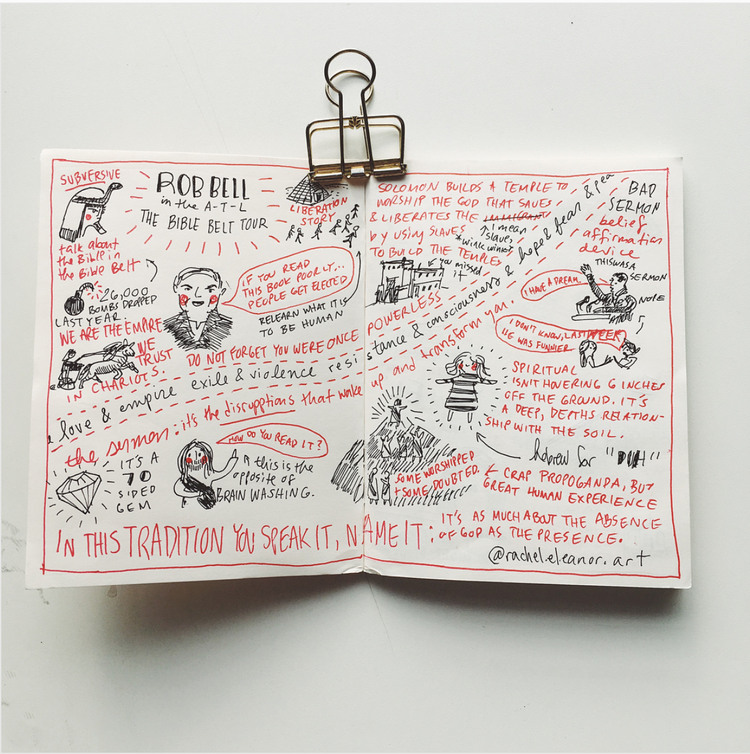 SUBVERSIVE
ROB BELL
in the A-T-L
THE BIBLE BELT TOUR
LIBERATION
STORY
talk about
the Bible in
the Bible Belt
26,000
BOMBS DROPPED
LAST YEAR
WE ARE THE EMPIRE
WE
TRUST
IN CHARIOTS.
IF YOU READ
THIS BOOK POORLY...
PEOPLE GET ELECTED
RELEARN WHAT IT IS
TO BE HUMAN
DO NOT FORGET YOU WERE ONCE POWERLESS
love & empire exile & violence resistance & consciousness & hope & fear &
the sermon: it's the disruptions that wake up and transform you.
IT'S A
70
SIDED
GEM
HOW DO YOU READ IT?
this is the
opposite of
BRAIN WASHING.
IN THIS TRADITION YOU SPEAK IT, NAME IT:
SOLOMON BUILDS A TEMPLE TO
WORSHIP THE GOD THAT SAVES
& LIBERATES THE IMMIGRANT
by USING SLAVES
TO BUILD THE TEMPLES
I mean
slaves,
*wink wink*
you missed
it
BAD
SERMON
belief
affirmation
device
THIS WAS A
SERMON
I HAVE A DREAM...
NOTE
I DON'T KNOW, LAST WEEK
HE WAS FUNNIER
SPIRITUAL
ISN'T HOVERING 6 INCHES
OFF THE GROUND. IT'S
A DEEP, DEPTHS RELATION-
SHIP WITH THE SOIL.
hebrew for "DUH"
SOME WORSHIPPED
+ SOME DOUBTED.
CRAP PROPOGANDA, BUT
GREAT HUMAN EXPERIENCE
IT'S AS MUCH ABOUT THE ABSENCE
OF GOD AS THE PRESENCE.
@rachel.eleanor.art